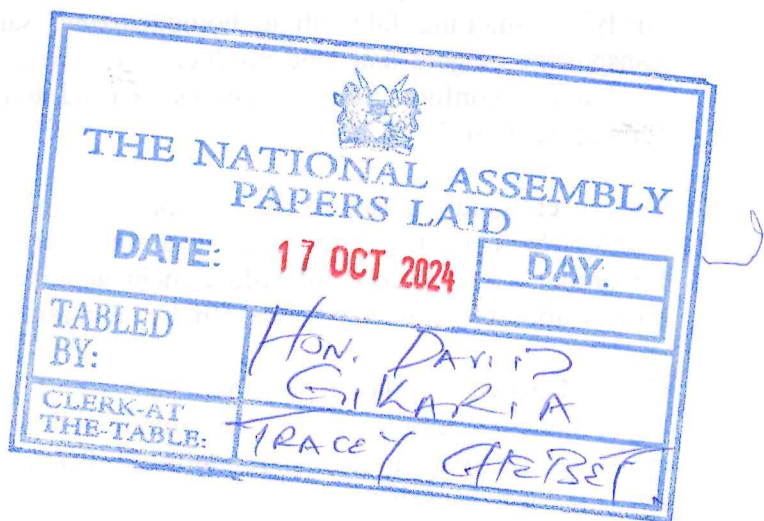 THE NATIONAL ASSEMBLY
PAPERS LAID
DATE: 17 OCT 2024 DAY.
TABLED BY: HON. DAVID GIKARIA
CLERK-AT THE-TABLE: TRACEY CHEBET